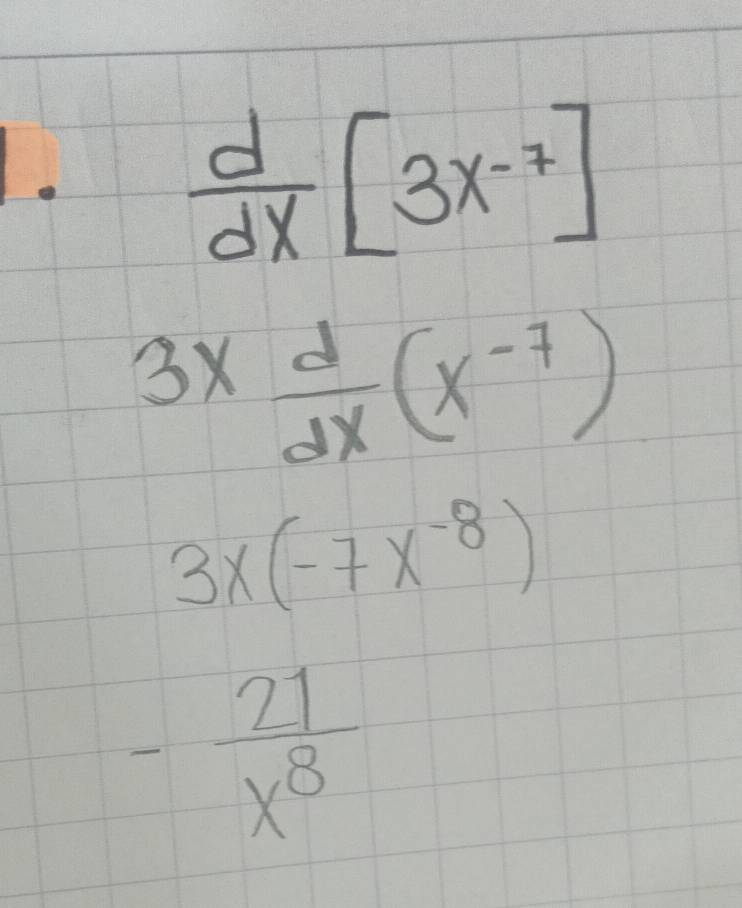 1. d/dx [3x⁻⁷]
3x d/dx (x⁻⁷)
3x(-7x⁻⁸)
- 21/x⁸